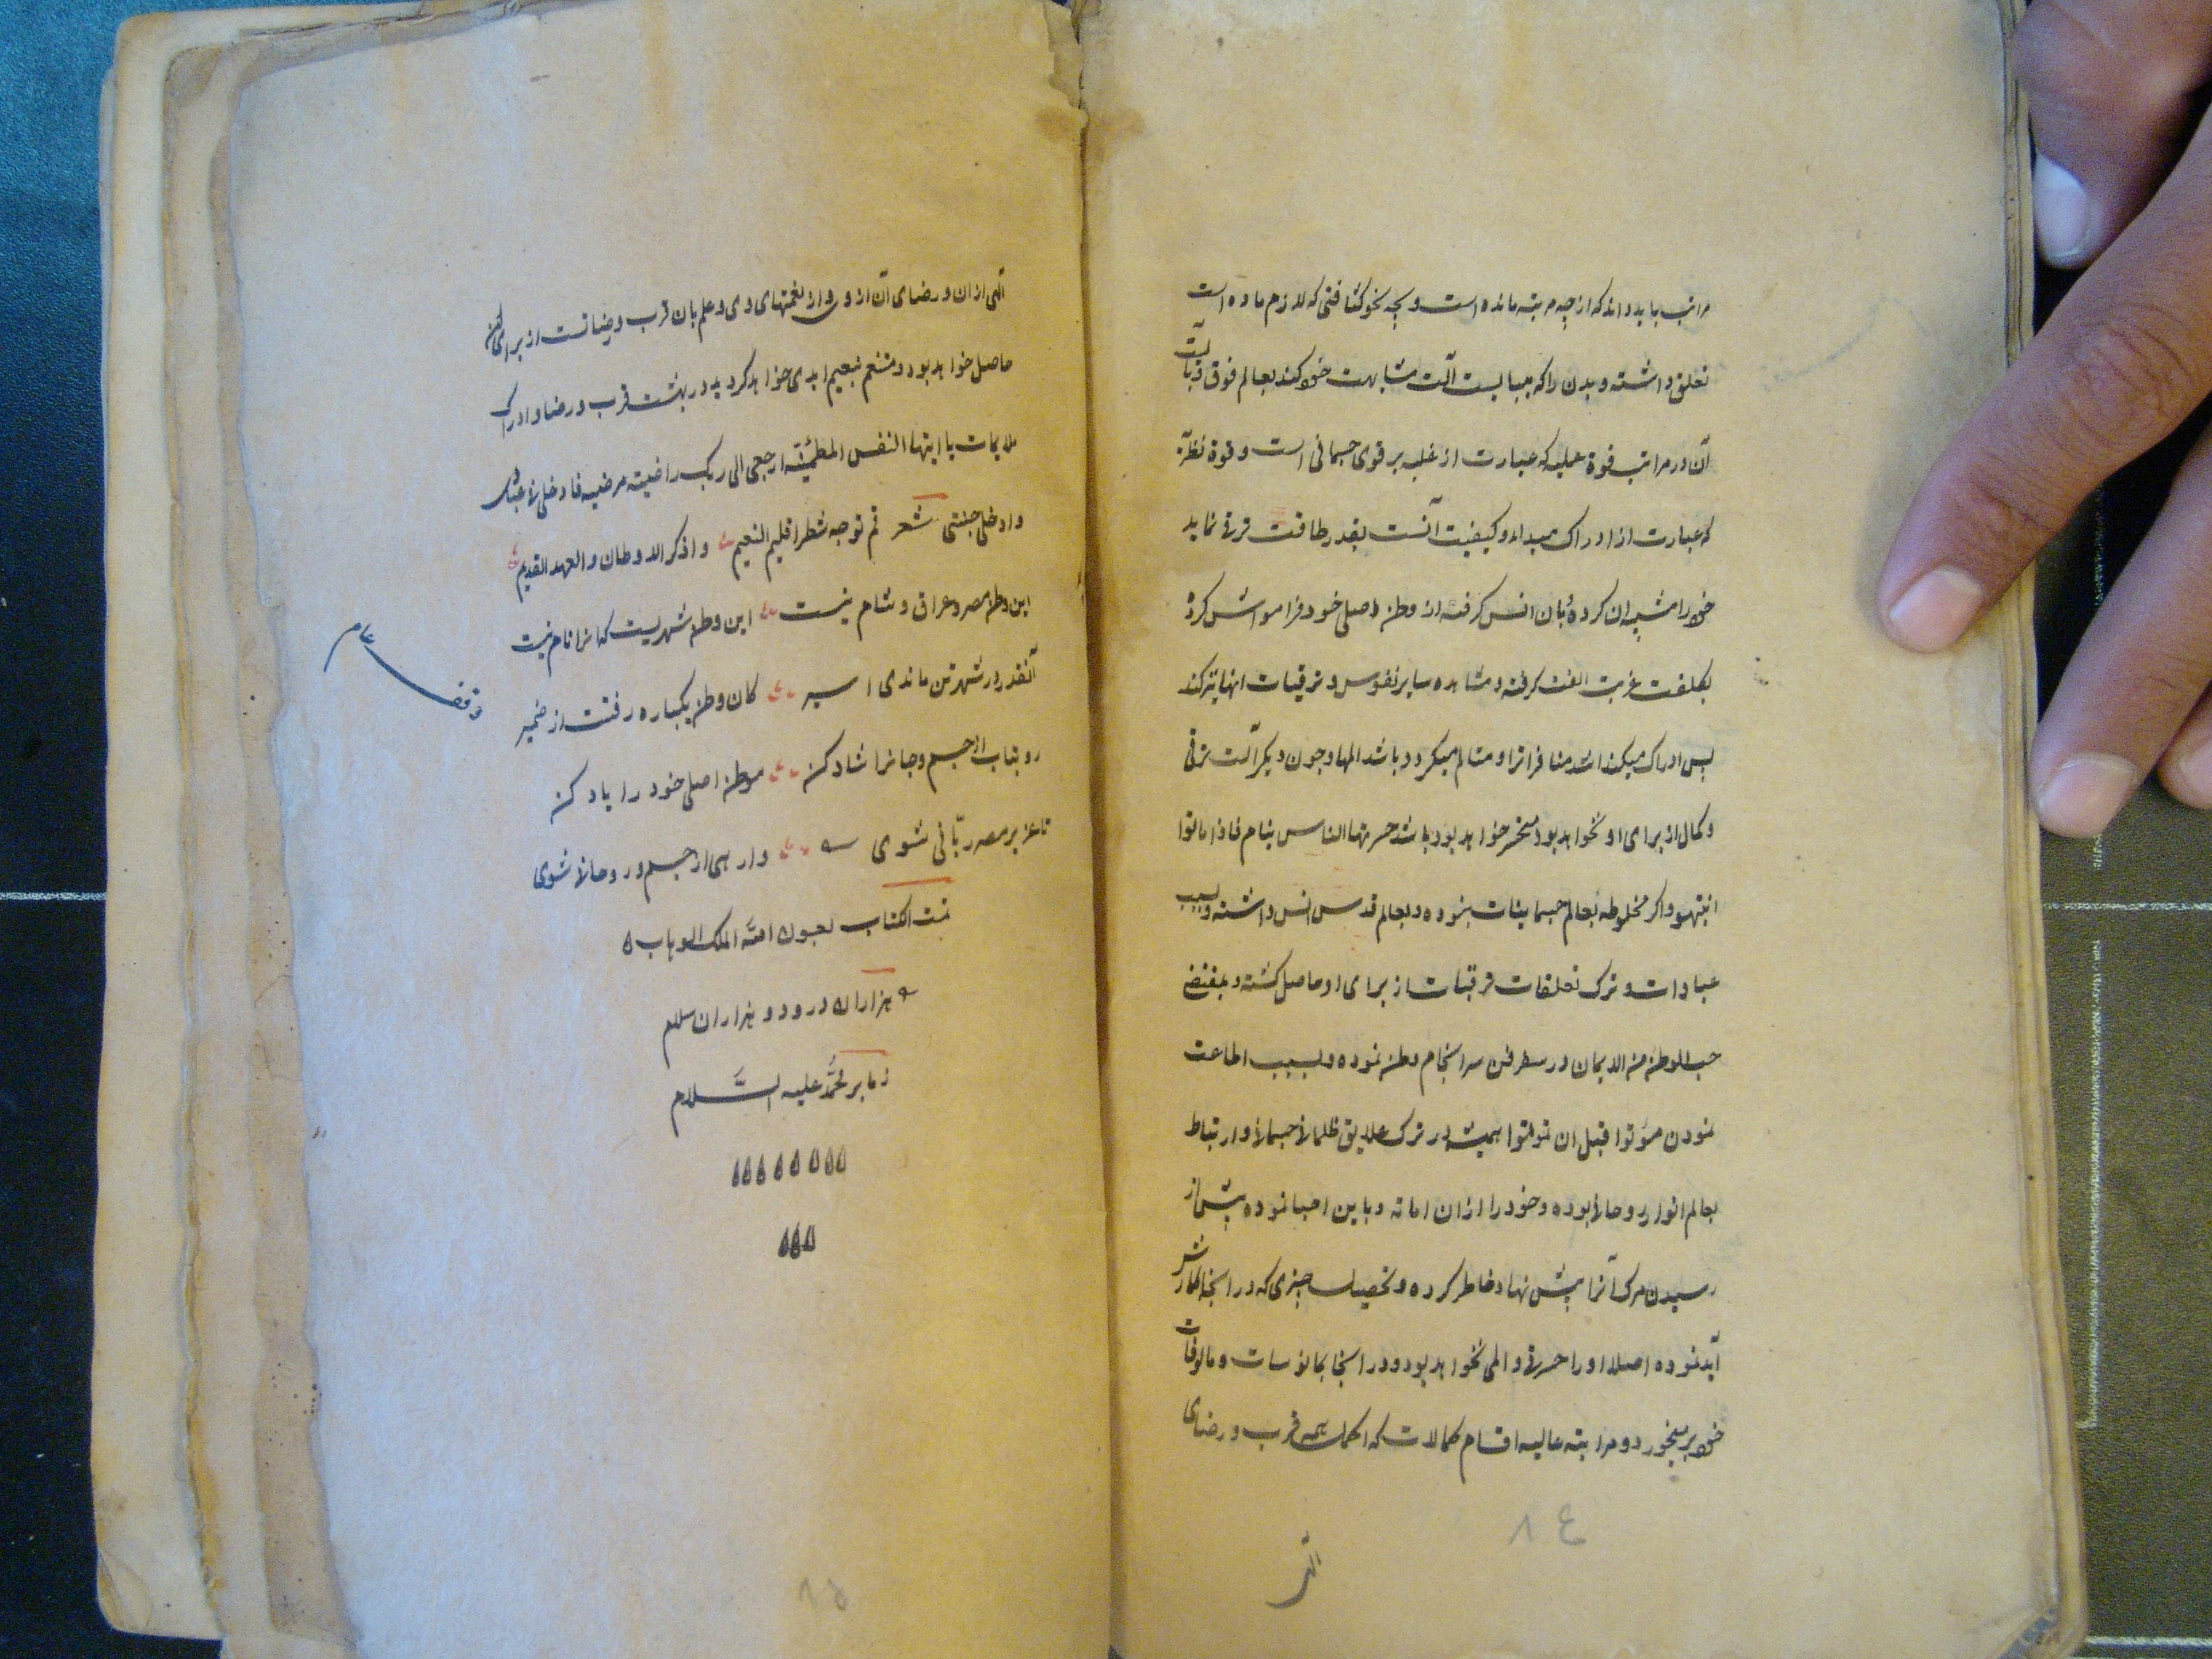 مراتب باید داند که از چه مرتبه مانده است و بچه نحو کثافتی که لازم ماده است
تعلق داشته و بدن را که میبایست آلت مشابهت خود کند بعالم فوق
آن در مراتب قوة عملیه که عبارت از غلبه بر قوی جسمانی است و قوة نظریه
که عبارت از ادراک مبداء و کیفیت آنست بقدر طاقت ترقی نماید
خود را کرده بآن انس گرفته از وطن اصلی خود فراموش کرده
بکلفت غربت الفت گرفته و مشاهده سایر نفوس و ترقیات انها
پس ادراک میکند اشد منافراترا و متالم میگردد باشد المها و چون دیگر آلت ترقی
و کمال از برای او نخواهد بود متحسر خواهد بود باشد حسرتها الناس نیام فاذا ماتوا
انتبهوا و اگر مخلوطه بعالم جسمانیات نبوده و بعالم قدس انس داشته و بسبب
عبادات و ترک تعلقات ترقیات از برای او حاصل گشته و بمقتضی
حب الوطن من الایمان در سفر فکر سرانجام وطن نموده و بسبب اطاعت
نمودن موتوا قبل ان تموتوا همیشه در ترک علایق ظلمانی جسمانی و ارتباط
بعالم انوار روحانی بوده و خود را از ان اماته و باین احیا نموده پیش از
رسیدن مرک آنرا پیش نهاد خاطر کرده و تحصیل چیزی که در اینجا بکارش
آید نموده اصلا او را حسرتی و المی نخواهد بود و در اینجا بمانوسات و مالوفات
خود برمیخورد و مراتبه عالیه اقسام کمالات که اکمل همه قرب و رضای
۸٤
الهی
الهی از ان و رضای آن از وی و از نعمتهای وی و علم بان قرب و رضاست از برای
حاصل خواهد بود و متنعم بنعیم ابدی خواهد گردید در بهشت قرب و رضا و ادراک
ملایمات یا ایتها النفس المطمئنّه ارجعی الی ربک راضیة مرضیه فادخلی فی عبادی
وادخلی جنتی شعر ثم توجه شطر اقلیم النعیم واذکر الاوطان والعهد القدیم
این وطن مصر و عراق و شام نیست این وطن شهریست کانرا نام نیست
آنقدر در شهر تن ماندی اسیر کان وطن یکباره رفتت از ضمیر
رو بتاب از جسم و جانرا شاد کن موطن اصلی خود را یاد کن
تا عزیز مصر ربّانی شوی وارهی از جسم و روحانی شوی
وقف عام
تمت الکتاب بعون الله الملک الوهاب
هزاران درود و هزاران سلام
ز ما بر محمّد علیه السّلام
۸۵